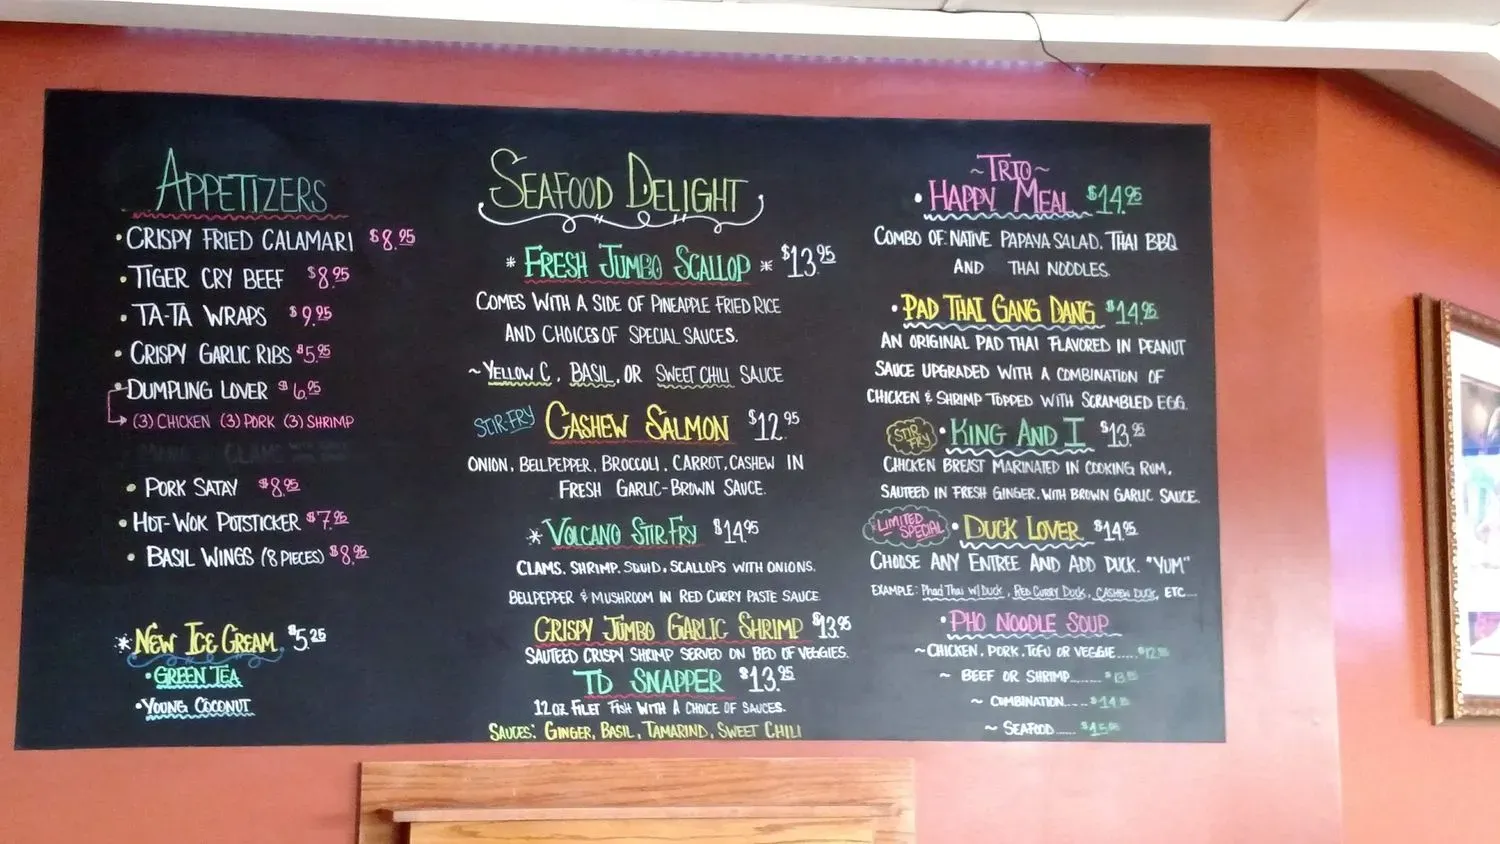 APPETIZERS
• CRISPY FRIED CALAMARI $8.95
• TIGER CRY BEEF $8.95
• TA-TA WRAPS $9.95
• CRISPY GARLIC RIBS $5.95
• DUMPLING LOVER $6.95
(3) CHICKEN (3) PORK (3) SHRIMP
• PORK SATAY $8.95
• HOT-WOK POTSTICKER $7.95
• BASIL WINGS (8 PIECES) $8.95
* NEW ICE CREAM $5.25
• GREEN TEA
• YOUNG COCONUT
SEAFOOD DELIGHT
* FRESH JUMBO SCALLOP * $13.95
COMES WITH A SIDE OF PINEAPPLE FRIED RICE
AND CHOICES OF SPECIAL SAUCES.
~ YELLOW C, BASIL, OR SWEET CHILI SAUCE
STIR-FRY CASHEW SALMON $12.95
ONION, BELLPEPPER, BROCCOLI, CARROT, CASHEW IN
FRESH GARLIC-BROWN SAUCE.
* VOLCANO STIR FRY $14.95
CLAMS, SHRIMP, SQUID, SCALLOPS WITH ONIONS.
BELLPEPPER & MUSHROOM IN RED CURRY PASTE SAUCE
CRISPY JUMBO GARLIC SHRIMP $13.95
SAUTEED CRISPY SHRIMP SERVED ON BED OF VEGGIES.
TD SNAPPER $13.95
12 OZ FILET FISH WITH A CHOICE OF SAUCES.
SAUCES: GINGER, BASIL, TAMARIND, SWEET CHILI
~ TRIO ~
• HAPPY MEAL $14.95
COMBO OF NATIVE PAPAYA SALAD, THAI BBQ
AND THAI NOODLES.
• PAD THAI GANG DANG $14.95
AN ORIGINAL PAD THAI FLAVORED IN PEANUT
SAUCE UPGRADED WITH A COMBINATION OF
CHICKEN & SHRIMP TOPPED WITH SCRAMBLED EGG.
STIR FRY • KING AND I $13.95
CHICKEN BREAST MARINATED IN COOKING RUM,
SAUTEED IN FRESH GINGER, WITH BROWN GARLIC SAUCE.
LIMITED SPECIAL • DUCK LOVER $14.95
CHOOSE ANY ENTREE AND ADD DUCK. "YUM"
EXAMPLE: Phad Thai w/ Duck, RED CURRY DUCK, CASHEW DUCK, ETC....
• PHO NOODLE SOUP
~ CHICKEN, PORK, TOFU OR VEGGIE.....
~ BEEF OR SHRIMP........
~ COMBINATION.....
~ SEAFOOD......